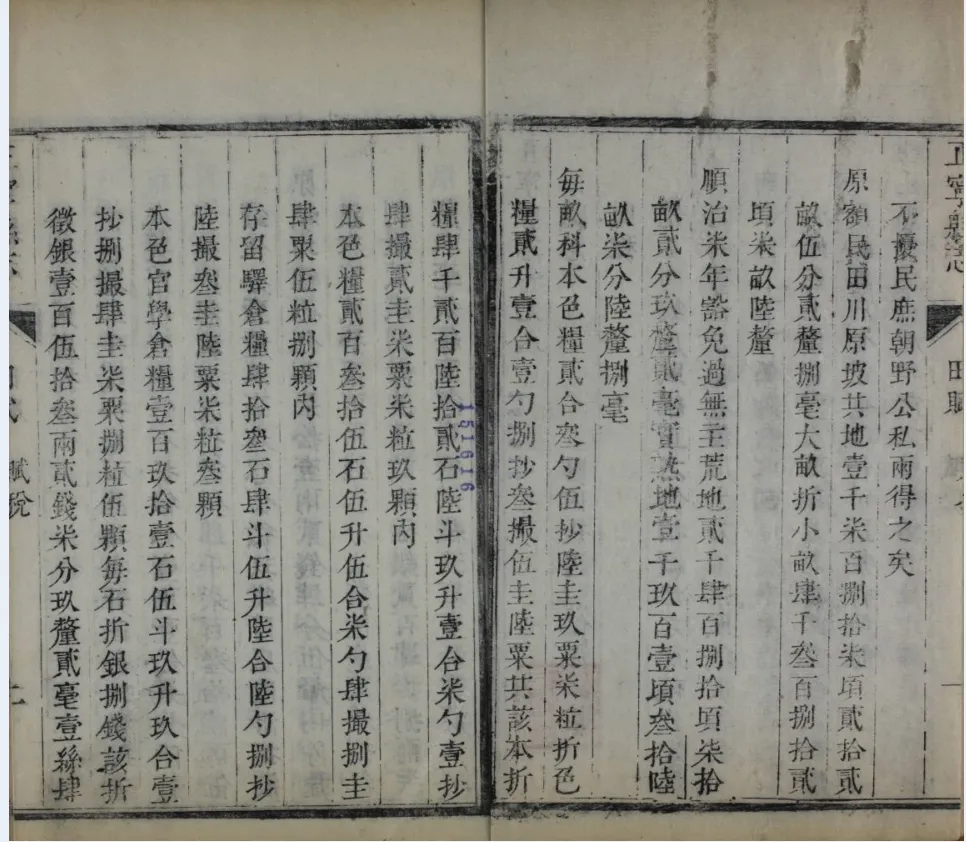 正寧縣志
田賦
不擾民庶朝野公私兩得之矣
原額民田川原坡共地壹千柒百捌拾柒頃貳拾貳
畝伍分貳釐捌毫大畝折小畝肆千叁百捌拾貳
頃柒畝陸釐
順治柒年豁免過無主荒地貳千肆百捌拾頃柒拾
畝貳分玖釐貳毫實熟地壹千玖百壹頃叁拾陸
畝柒分陸釐捌毫
每畝科本色糧貳合叁勺伍抄陸圭玖粟柒粒折色
糧貳升壹合壹勺捌抄叁撮伍圭陸粟共該本折
糧肆千貳百陸拾貳石陸斗玖升壹合柒勺壹抄
肆撮貳圭柒粟柒粒玖顆內
本色糧貳百叁拾伍石伍升伍合柒勺肆撮捌圭
肆粟伍粒捌顆內
存留驛倉糧肆拾叁石肆斗伍升陸合陸勺捌抄
陸撮叁圭陸粟柒粒叁顆
本色官學倉糧壹百玖拾壹石伍斗玖升玖合壹
抄捌撮肆圭柒粟捌粒伍顆每石折銀捌錢該折
徵銀壹百伍拾叁兩貳錢柒分玖釐貳毫壹絲肆
賦稅
151616